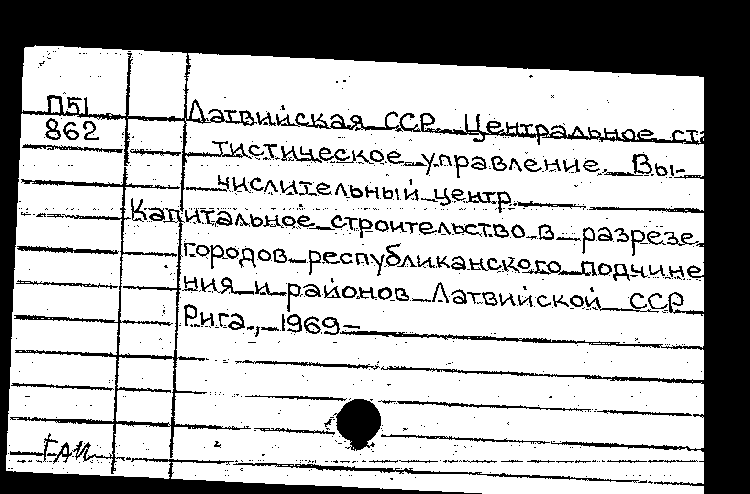 П51
862
Латвийская ССР Центральное ста
тистическое управление. Вы-
числительный центр.
Капитальное строительство в разрезе
городов республиканского подчине
ния и районов Латвийской ССР
Рига, 1969-